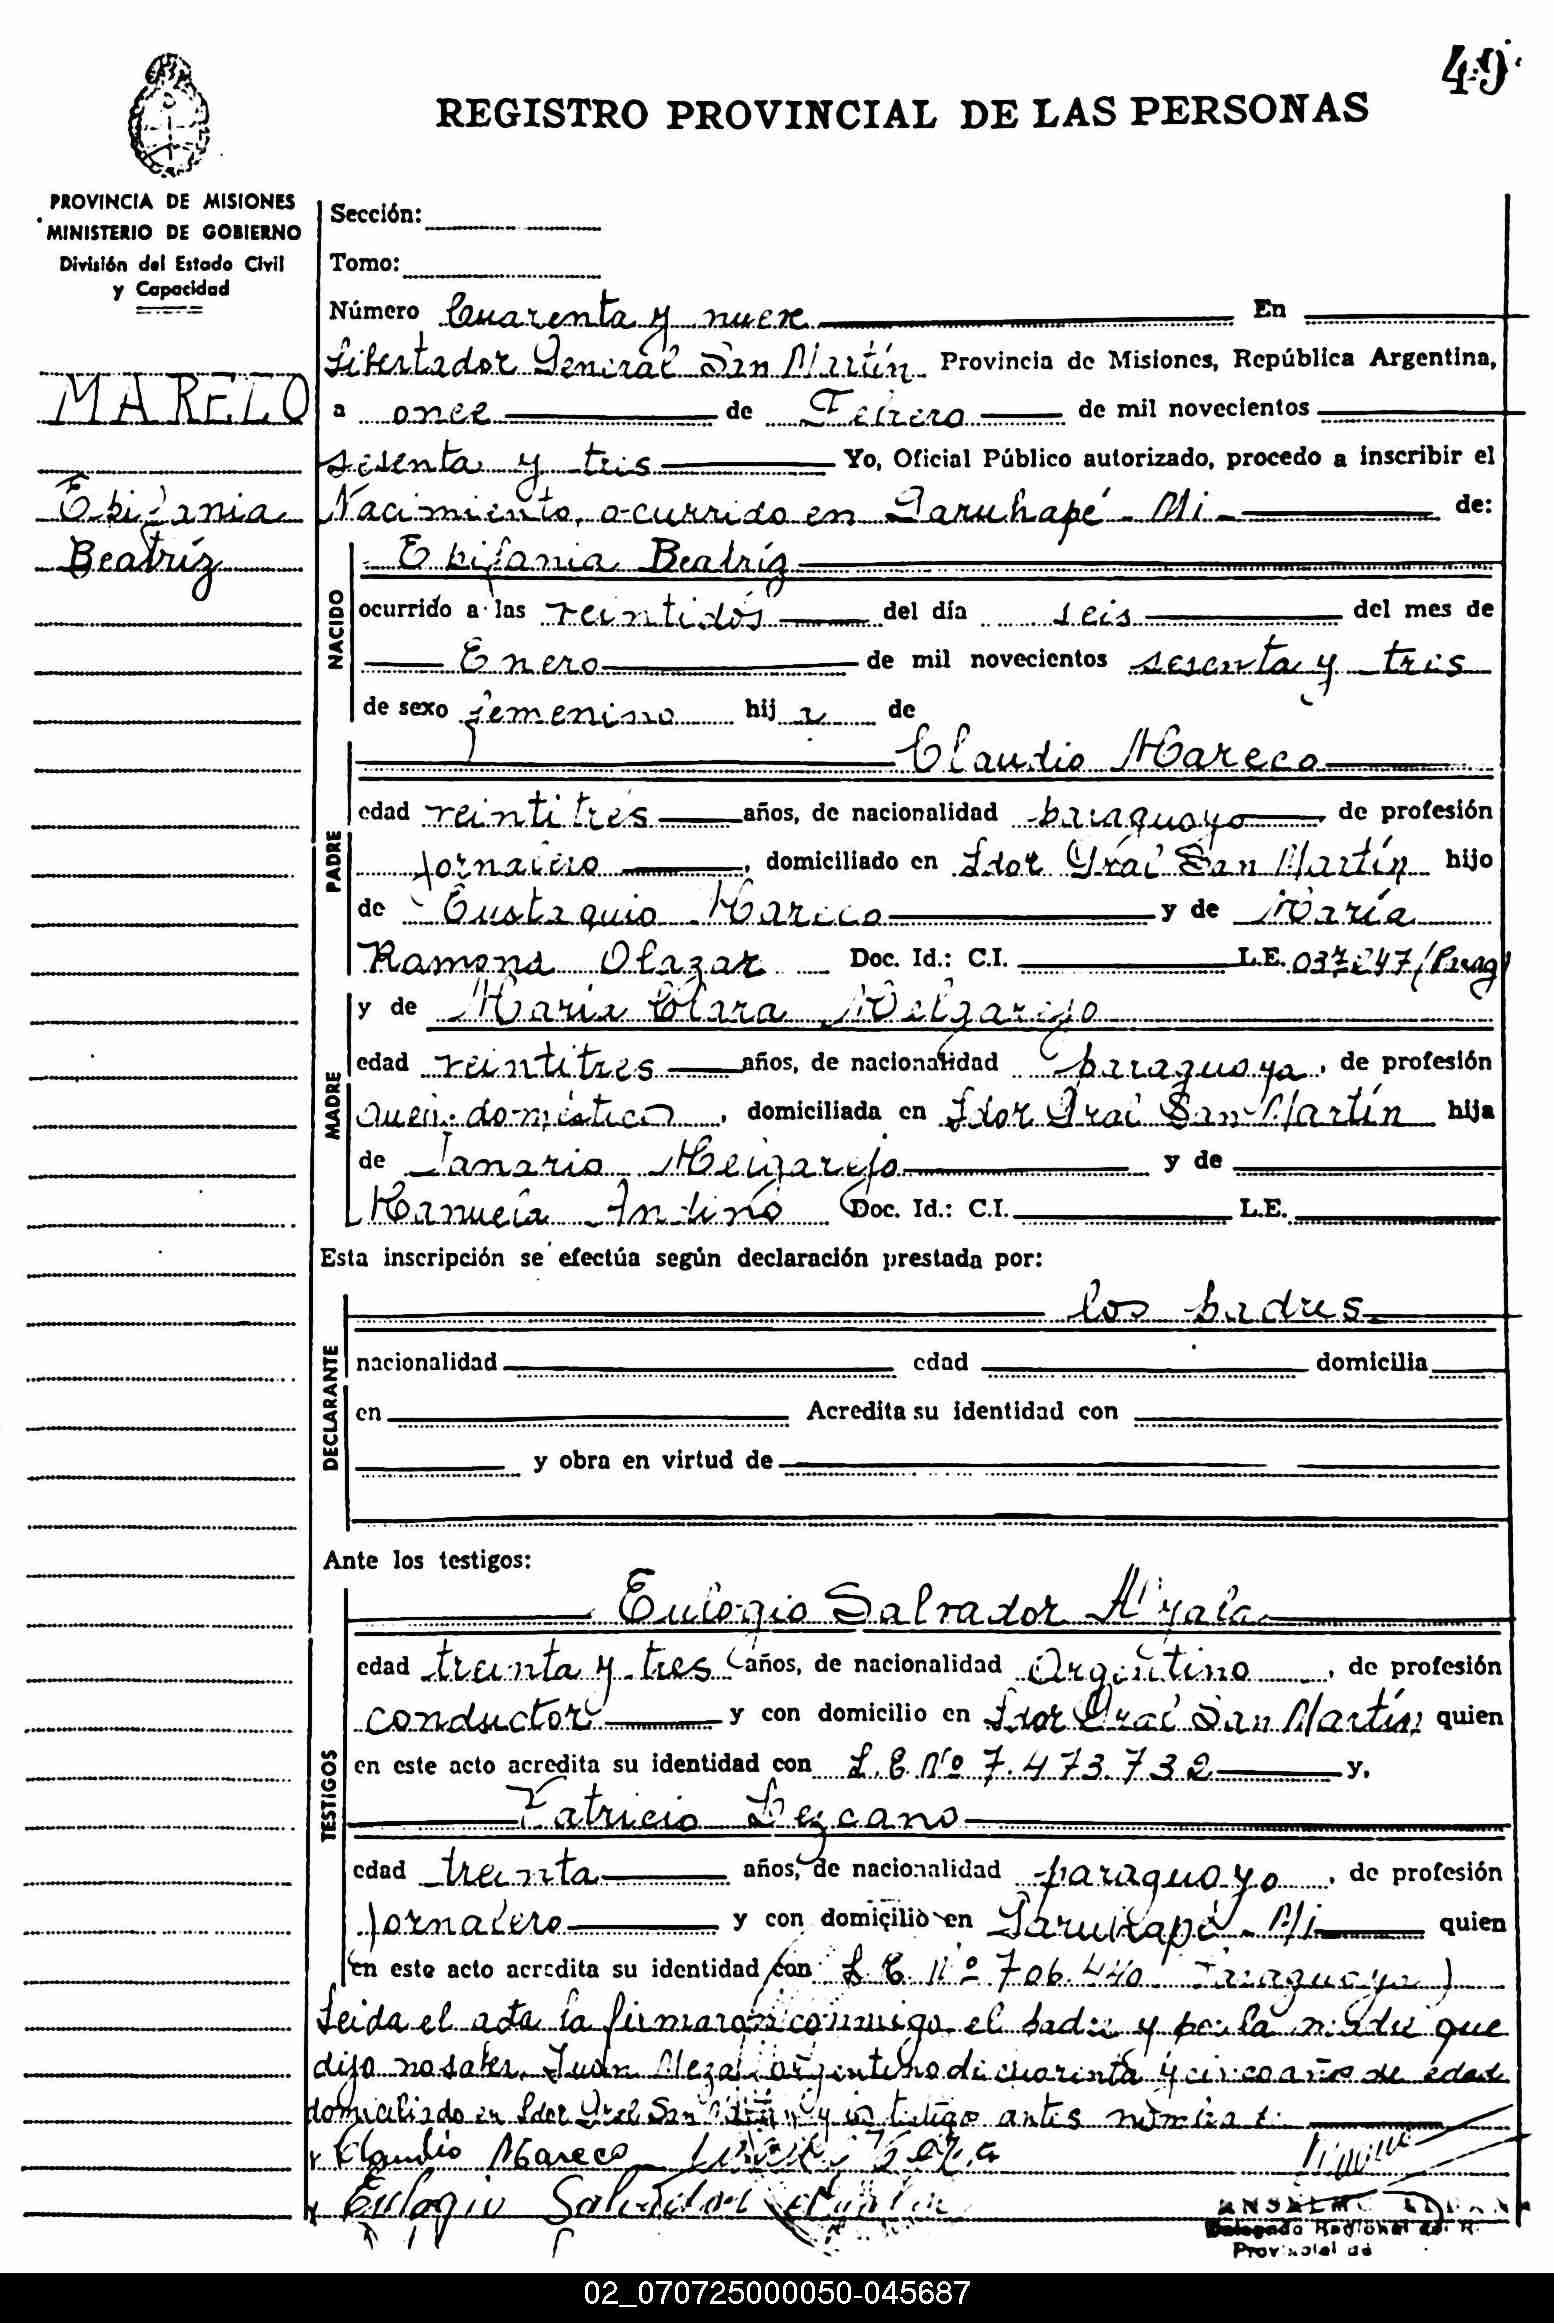 49
REGISTRO PROVINCIAL DE LAS PERSONAS
PROVINCIA DE MISIONES
MINISTERIO DE GOBIERNO
División del Estado Civil
y Capacidad
MARECO
Epifania
Beatríz
Sección:
Tomo:
Número Cuarenta y nueve En
Libertador General San Martín Provincia de Misiones, República Argentina,
a once de Febrero de mil novecientos
sesenta y tres Yo, Oficial Público autorizado, procedo a inscribir el
Nacimiento, ocurrido en Garuhapé - Mi - de:
NACIDO
Epifania Beatríz
ocurrido a las veintidós del día seis del mes de
Enero de mil novecientos sesenta y tres
de sexo femenino hija de
PADRE
Claudio Mareco
edad veintitrés años, de nacionalidad paraguayo de profesión
jornalero, domiciliado en Ldor Gral San Martín hijo
de Eustaquio Mareco y de María
Ramona Olazar Doc. Id.: C.I. L.E.
MADRE
y de María Clara Melgarejo
edad veintitres años, de nacionalidad paraguaya, de profesión
domiciliada en Ldor Gral San Martín hija
de Melgarejo y de
Manuela Doc. Id.: C.I. L.E.
Esta inscripción se efectúa según declaración prestada por:
DECLARANTE
los padres
nacionalidad edad domicilia
en Acredita su identidad con
y obra en virtud de
Ante los testigos:
TESTIGOS
Eulogio Salvador Ayala
edad treinta y tres años, de nacionalidad Argentino, de profesión
conductor y con domicilio en Ldor Gral San Martín, quien
en este acto acredita su identidad con L.E. Nº 7.473.732 y,
Patricio Lezcano
edad treinta años, de nacionalidad paraguayo, de profesión
jornalero y con domicilio en Garuhapé - Mi quien
en este acto acredita su identidad con Nº 706.440
Leida el acta la firmaron conmigo el padre y por la madre que
dijo no saber, Juan Meza, argentino de cuarenta y cinco años de edad
domiciliado en Ldor Gral San Martín y testigo antes
Claudio Mareco
Eulogio Salvador Ayala
Delegado Regional del R.
Provincial de
02_070725000050-045687